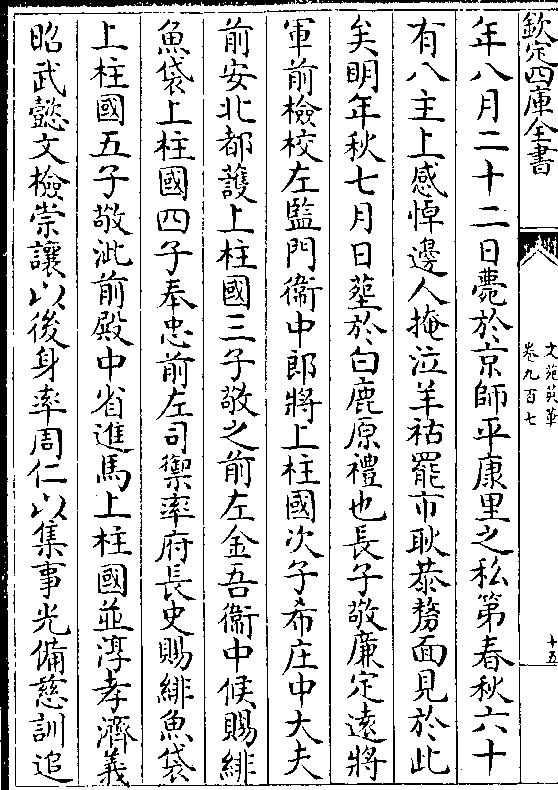 欽定四庫全書
文苑英華
卷九百七
十五
年八月二十二日薨於京師平康里之私第春秋六十
有八主上感悼邊人掩泣羊祜罷市耿恭剺面見於此
矣明年秋七月日塟於白鹿原禮也長子敬廉定遠將
軍前檢校左監門衞中郎將上柱國次子希庄中大夫
前安北都䕶上柱國三子敬之前左金吾衞中候賜緋
魚袋上柱國四子奉忠前左司禦率府長史賜緋魚袋
上柱國五子敬泚前殿中省進馬上柱國並淳孝濟義
昭武懿文檢崇讓以後身率周仁以集事光備慈訓追